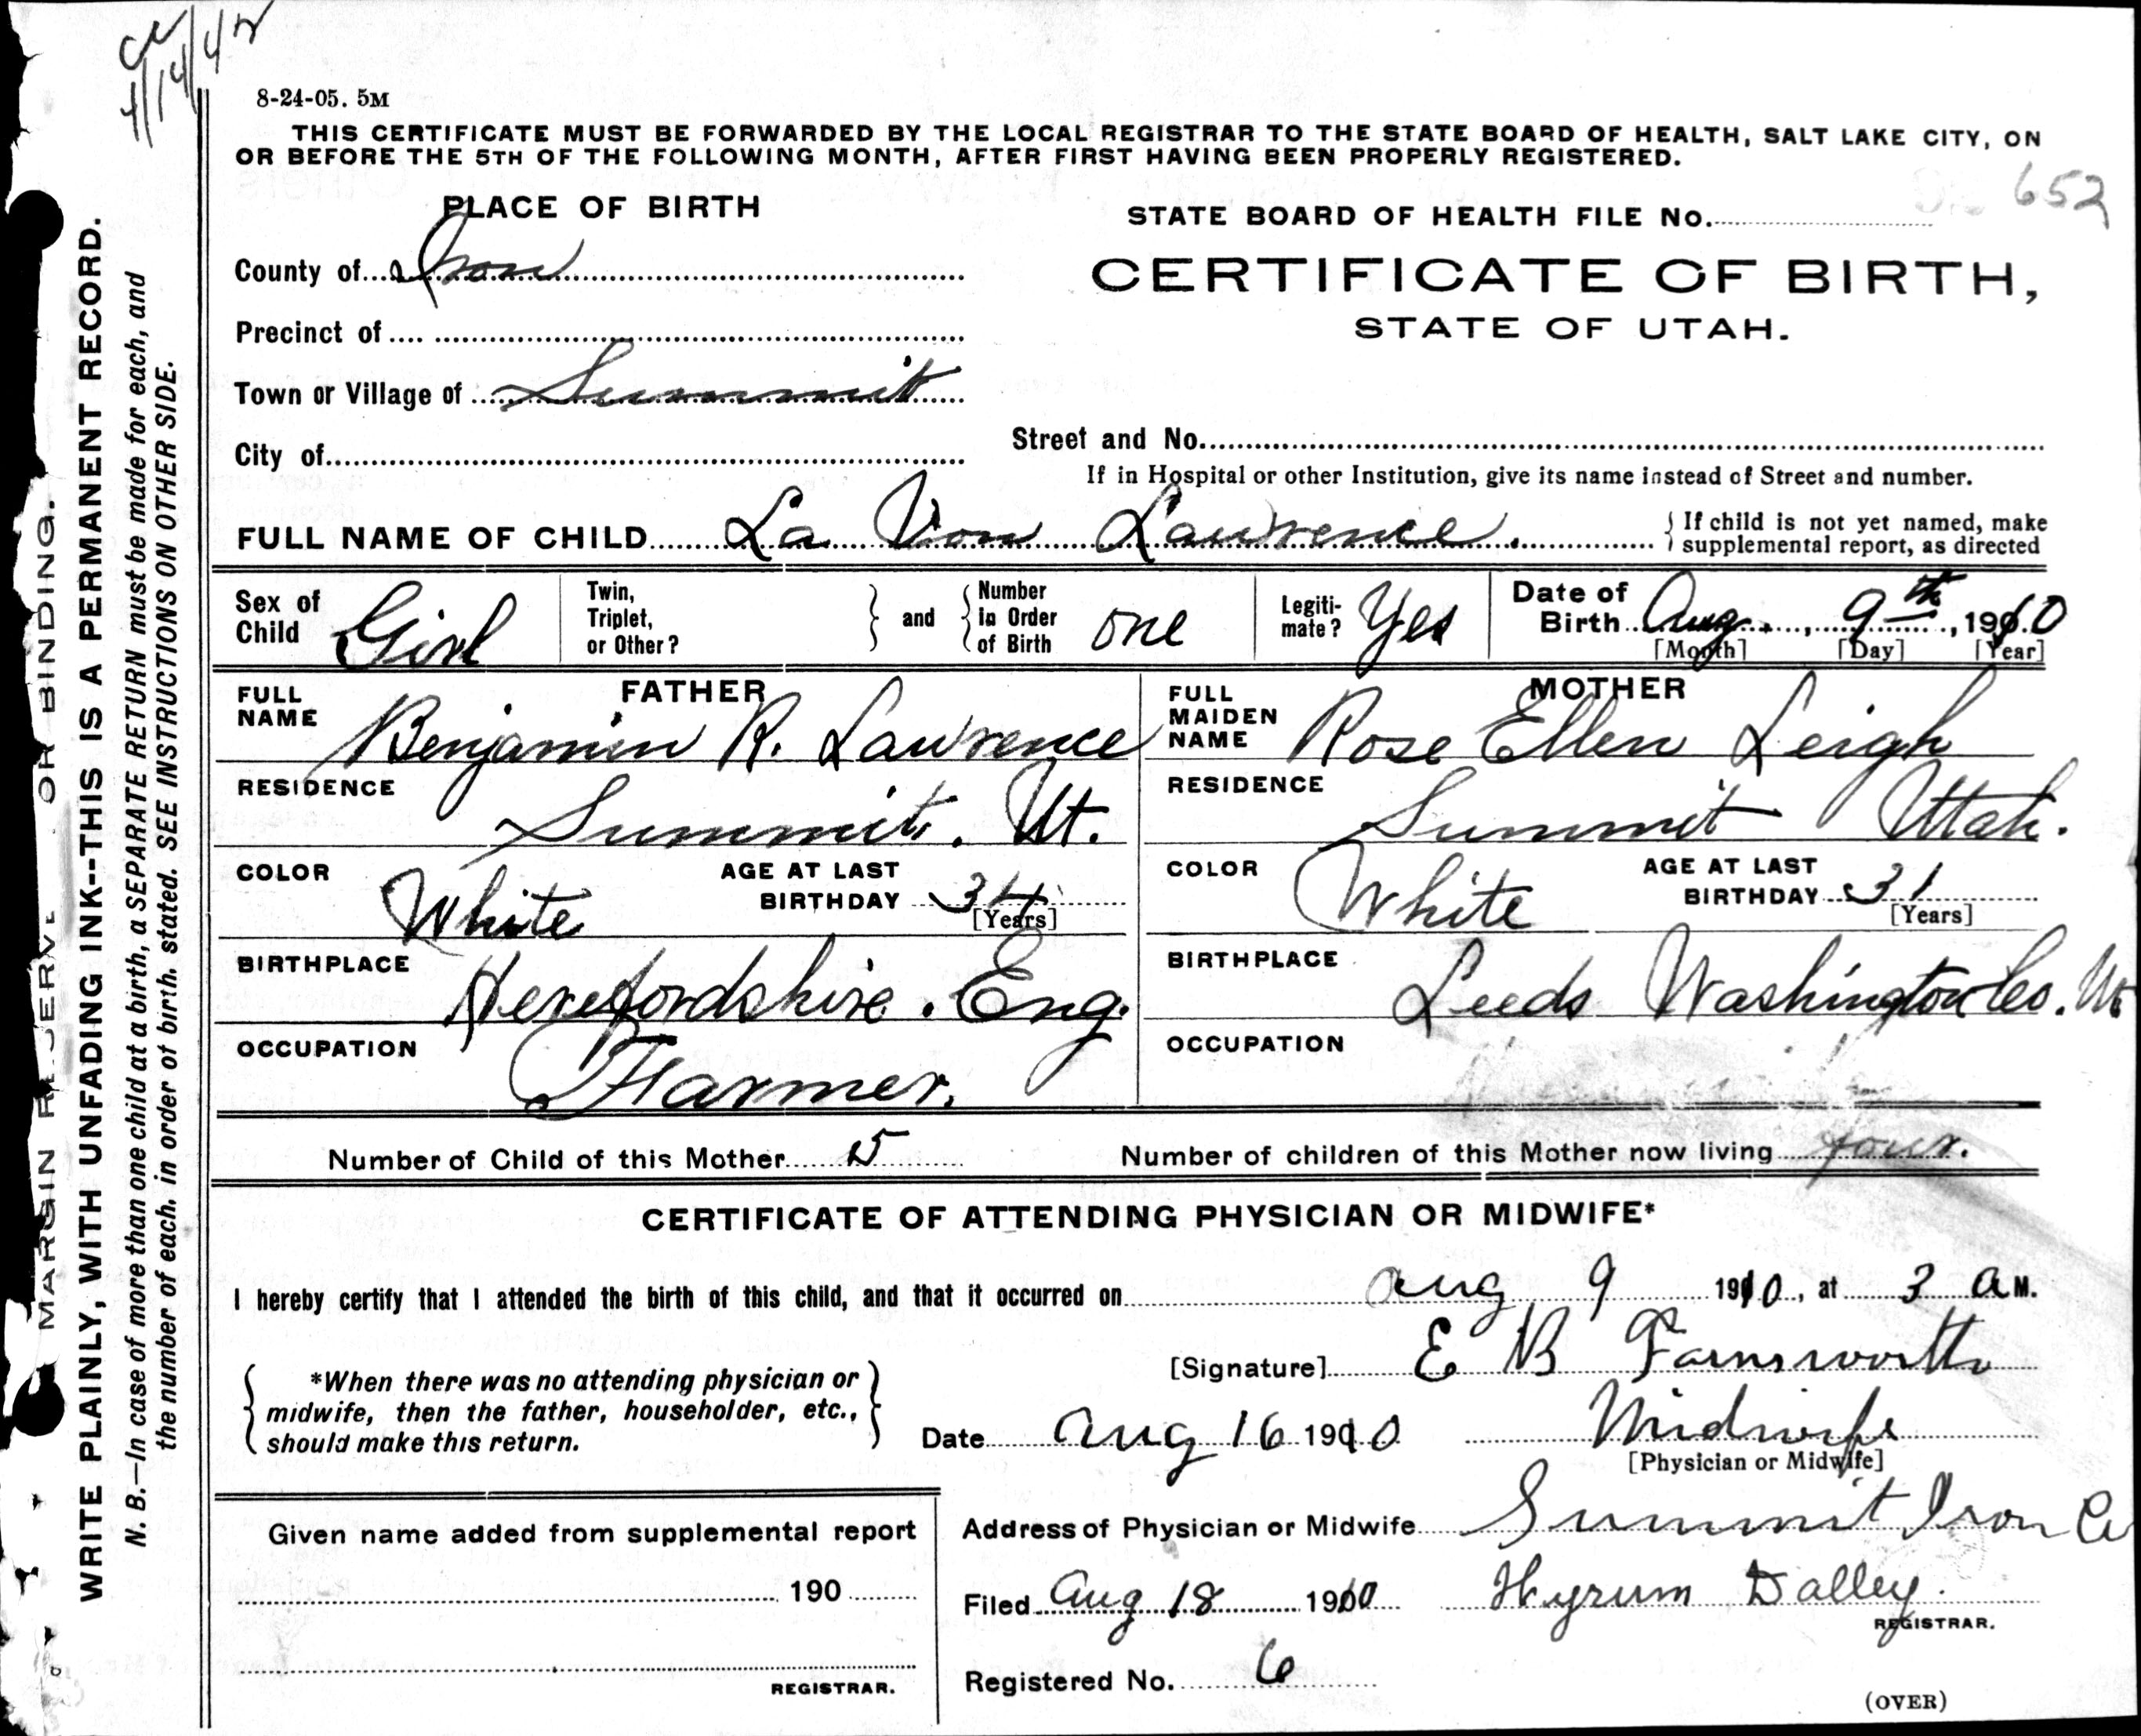 4/14/42
8-24-05. 5M
THIS CERTIFICATE MUST BE FORWARDED BY THE LOCAL REGISTRAR TO THE STATE BOARD OF HEALTH, SALT LAKE CITY, ON
OR BEFORE THE 5TH OF THE FOLLOWING MONTH, AFTER FIRST HAVING BEEN PROPERLY REGISTERED.
PLACE OF BIRTH
STATE BOARD OF HEALTH FILE No. 652
County of Iron
CERTIFICATE OF BIRTH,
STATE OF UTAH.
Precinct of
Town or Village of Summit
City of
Street and No.
If in Hospital or other Institution, give its name instead of Street and number.
FULL NAME OF CHILD La Von Lawrence. { If child is not yet named, make
supplemental report, as directed
Sex of Child Girl
Twin, Triplet, or Other? } and { Number in Order of Birth one
Legiti-mate? Yes
Date of Birth Aug. 9th, 1910
[Month] [Day] [Year]
FATHER
FULL NAME Benjamin R. Lawrence
RESIDENCE Summit. Ut.
COLOR White
AGE AT LAST BIRTHDAY 34
[Years]
BIRTHPLACE Herefordshire. Eng.
OCCUPATION Farmer.
MOTHER
FULL MAIDEN NAME Rose Ellen Leigh
RESIDENCE Summit Utah.
COLOR White
AGE AT LAST BIRTHDAY 31
[Years]
BIRTHPLACE Leeds Washington Co. Ut
OCCUPATION
Number of Child of this Mother 5
Number of children of this Mother now living four.
CERTIFICATE OF ATTENDING PHYSICIAN OR MIDWIFE*
I hereby certify that I attended the birth of this child, and that it occurred on Aug 9 1910, at 3 a M.
[Signature] E B Farnsworth
{ *When there was no attending physician or
midwife, then the father, householder, etc.,
should make this return. }
Date Aug 16 1910
Midwife
[Physician or Midwife]
Given name added from supplemental report
190
REGISTRAR.
Address of Physician or Midwife Summit Iron Co
Filed Aug 18 1910 Hyrum Dalley.
REGISTRAR.
Registered No. 6
(OVER)
MARGIN RESERVE OR BINDING.
WRITE PLAINLY, WITH UNFADING INK--THIS IS A PERMANENT RECORD.
N. B.—In case of more than one child at a birth, a SEPARATE RETURN must be made for each, and
the number of each. in order of birth. stated. SEE INSTRUCTIONS ON OTHER SIDE.